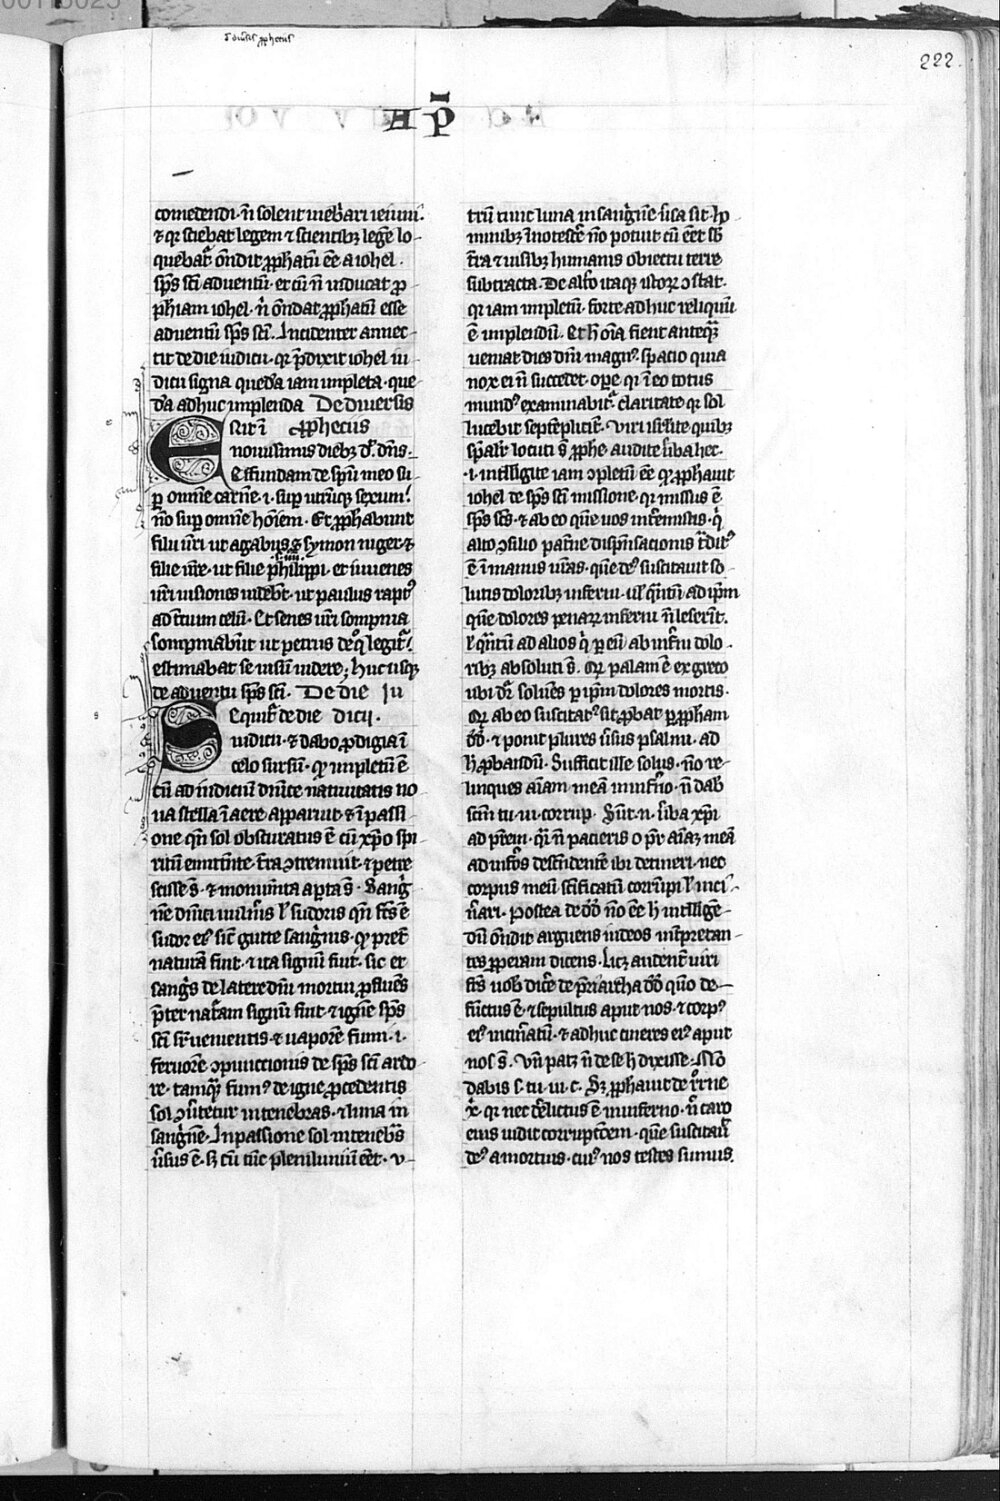 222.
AP̄
comedendi· ñ solent inebͥari ieiuni·
⁊ qꝛ sciebat legem ⁊ scientibꝫ legē lo-
quebat᷑ ōndit ꝓphatū eē a iohel·
sp̄s sc̄i aduentū· et cū ñ inducat ꝓ
phiam iohel· nͥ ōndat ꝓphatū esse
aduentū sp̄s sc̄i· Incidenter annec-
tit de die iudicii· qꝛ p̄dixit iohel iu
dicii signa quedā iam impleta· que-
dā adhuc implenda De diuersis
Erit ī ꝓphetiis
nouissimis diebꝫ d̄· dn̄s·
Effundam de spū meo su
ꝑ omnē carnē·i· suꝑ utrūqꝫ sexum·
nō suꝑ omnē hōiem· Et ꝓphabunt
filii ur̄i ut agabus ⁊ symon niger ⁊
filie ur̄e· ut filie philippi· et iuuenes
ur̄i uisiones uidebt̄· ut paulus raptꝰ
ad t̄cium celū· Et senes ur̄i sompnia
sompniabūnt ut petrus de qͦ legit᷑·
estimabat se uisū uidere; huc usqꝫ
de aduentu sp̄s sc̄i· De die iu
Sequit᷑ de die dicii·
iudicii· ⁊ dabo ꝓdigia ī
celo sursū· qͥ impletū ē
cū ad indiciū diuīne natiuitatis no
ua stella ī aere apparuit ⁊ ī passi
one qn̄ sol obscuratus ē cū xp̄o spi-
ritū emittn̄te t̄ra ꝯtremuit· ⁊ petre
scisse s̄· ⁊ monumn̄ta aꝑta s̄· Sang͛
sudor eiꝰ sic̄ gutte sangͥnis· qͥ pret᷑
naturā fiūt· ⁊ ita signū fuit᷑· sic et
sangͥs de latere dn̄i mortui ꝓfluēs
p̄ter nat᷑am signū fuit· ⁊ ignē sp̄s
sc̄i fr̄uementis· ⁊ uaporē fumi·i·
feruorē ꝯpunctionis de sp̄s sc̄i ardo-
re· tamqͣꝫ fumꝰ de igne ꝓcedentis
sol ꝯūtetur in tenebras· ⁊ luna in
sangͥnē· In passione sol in tenebͣs
ūsus ē· sꝫ cū tūc plenilunīu eēt· v-
trū tunc luna in sangͥnē ūsa sit· ho
minibꝫ īnotescē nō potuit cū eēt sb̄
t̄ra ⁊ uisibꝫ humanis obiectu terre
subtracta· De altͦo itaqꝫ istoꝝ ꝯstat·
qꝛ iam impletū· forte adhuc reliquū
ē implendū· Et h̄ oīa fient anteqͣꝫ
ueniat dies dn̄i magnꝰ· spacio quia
nox ei ñ succedet· oꝑe qꝛ ī eo totus
mundꝰ examinabit᷑· claritate qꝛ sol
lucebit septēplicit᷑· Viri isr̄lite quibꝫ
sp̄alit᷑ locuti s̄ ꝓphe· audite ūba hec·
·i· intelligite iam ꝯpletū eē qͥ ꝓphauit
iohel de sp̄s sc̄i missione· qꝛ missus ē
sp̄s sc̄s· ⁊ ab eo quē uos int͛emistis· qͥ
alto ꝯsilio pat͛ne dispn̄sacionis t͛ditꝰ
ē ī manus ur̄as· quē dē suscitauit so-
lutis doloribꝫ inferni· ul̄ qͣntū ad ip̄m
quē dolores penaꝝ inferni ñ leserūt·
l̄ qͣntū ad alios qͥ ꝑ eū ab inferni dolo-
ribꝫ absoluti s̄· Qꝛ palam ē ex greco
ubi dr̄ soluēs ꝑ ip̄m dolores mortis·
Qꝛ ab eo suscitatꝰ sit ꝓbat ꝑ ꝓpham
dd̄· ⁊ ponit plures ūsus psalmi· ad
h̄ ꝓbandū· Sufficit ille solus· nō re-
linques aīam meā in infͣno· ñ dab̄
scm̄ tu·ui·corrup· Sūt·n· ūba xp̄i
ad pr̄em· qͣꝛ ñ pacieris o pr̄ aīaꝫ meā
ad infͦs descēdentē ibi detineri· nec
corpus meū scīficatū corrūpi l̄ inci-
n̄ari· Postea de dd̄ nō eē h̄ intellige-
dū ōndit arguens iudeos int͛pretan-
tes ꝓperam dicens· Licꝫ audent᷑ uiri
fr̄s uob̄ dicē de p̄riarcha dd̄ qm̄o de-
fūctus ē· ⁊ sepultus aput nos· ⁊ corpꝰ
eiꝰ incin̄atū· ⁊ adhuc cineres eiꝰ aput
nos s̄· Vn̄ patꝫ ñ de se h̄ dixisse· Nō
dabis s· tu·ui·c· Sꝫ ꝓphauit de r͛r͛ne
x̄· qꝛ nec derͤlictus ē in inferno· ñ caro
eius uidit corruptōem· quē suscitauit
deꝰ a mortuis· cuiꝰ nos testes sumus·